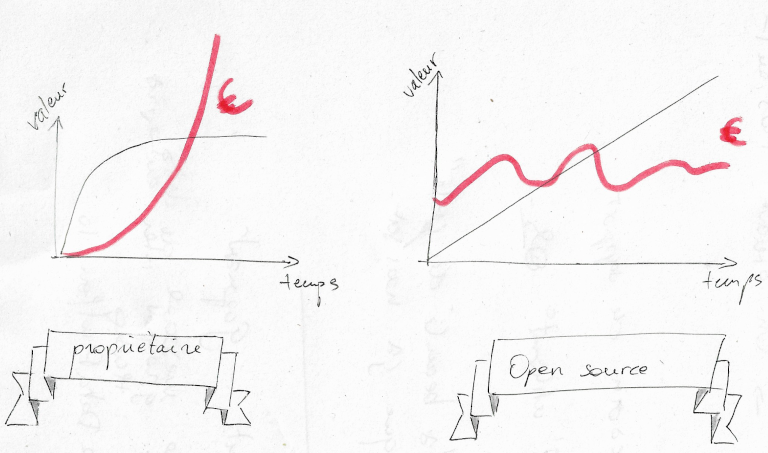 valeur
€
temps
propriétaire
valeur
€
temps
Open source